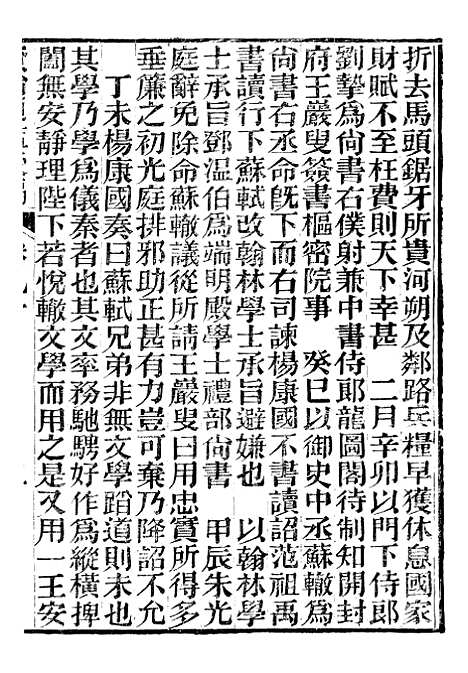 折去馬頭鋸牙所貴河朔及鄰路兵糧早獲休息國家
財賦不至枉費則天下幸甚　二月辛卯以門下侍郎
劉摯爲尚書右僕射兼中書侍郎龍圖閣待制知開封
府王巖叟簽書樞密院事　癸巳以御史中丞蘇轍爲
尚書右丞命旣下而右司諫楊康國不書讀詔范祖禹
書讀行下蘇軾改翰林學士承旨避嫌也　以翰林學
士承旨鄧温伯爲端明殿學士禮部尚書　甲辰朱光
庭辭免除命蘇轍議從所請王巖叟曰用忠實所得多
垂簾之初光庭排邪助正甚有力豈可棄乃降詔不允
丁未楊康國奏曰蘇軾兄弟非無文學蹈道則未也
其學乃學爲儀秦者也其文率務馳騁好作爲縱橫捭
闔無安靜理陛下若悅轍文學而用之是又用一王安